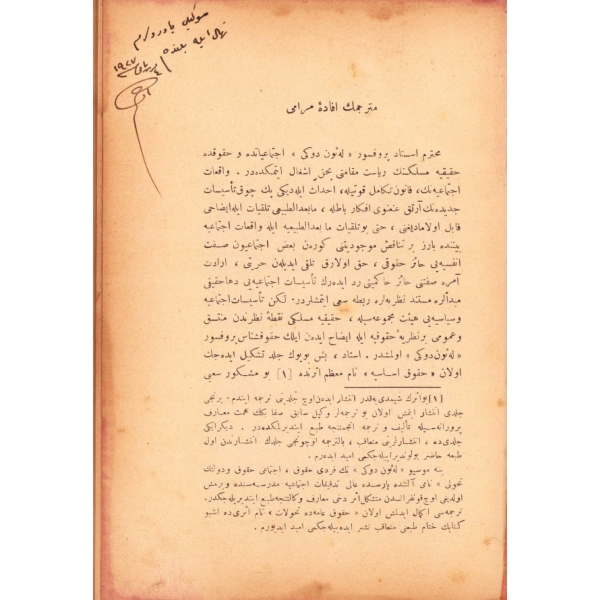 مترجمك افادۀ مرامی
محترم استاد پروفسور « لەئون دوكی » اجتماعیاتده و حقوقده
حقیقیه مسلكنك ریاست مقامنی بحق اشغال ایتمكده‌در . واقعات
اجتماعیه‌نك، قانون تكامل قوتیله، احداث ایله‌دیكی پك چوق تأسیسات
جدیده‌نك آرتق عنعنوی افكار باطله ، مابعدالطبیعی تلقیات ایله ایضاحی
قابل اولامادیغنی ، حتی بو تلقیات ما بعدالطبیعیه ایله واقعات اجتماعیه
بیننده بارز بر تناقض موجودیتنی كورەن بعض اجتماعیون صفت
انفسیه‌یی حائز حقوقی ، حق اولارق تلقی ایدیلەن حریتی ، ارادت
آمره صفتنی حائز حاكمیتی رد ایده‌رك تأسیسات اجتماعیه‌یی دها حقیقی
مبدألره مستند نظریه‌لره ربطه سعی ایتمشلردر. لكن تأسیسات اجتماعیه
وسیاسیه‌یی هیئت مجموعه‌سیله ، حقیقیه مسلكی نقطۀ نظرندن منسق
وعمومی بر نظریۀ حقوقیه ایله ایضاح ایدەن ایلك حقوقشناس پروفسور
« لەئون دوكی » اولمشدر. استاد ، بش بویوك جلد تشكیل ایده‌جك
اولان « حقوق اساسیه » نام معظم اثرنده [۱] بو مشكور سعی
[۱] بو اثرك شیمدی‌یه‌قدر انتشار ایدەن اوچ جلدینی ترجمه ایتدم. برنجی
جلدی انتشار ایتمش اولان بو ترجمه‌لر وكیل سابق صفا بك همت معارف
پرورانه‌سیله تألیف و ترجمه انجمنجه طبع ایتدیرلمكده‌در . دیكر ایكی
جلدی‌ده ، انتشارلرینی متعاقب ، بالترجمه اوچونجی جلدك انتشارندن اول
طبعه حاضر بولوندیرابیله‌جكمی امید ایدەرم .
ینه موسیو « لەئون دوكی » نك فردی حقوق ، اجتماعی حقوق ودولتك
تحولی » نامی آلتنده پارسده عالی تدقیقات اجتماعیه مدرسه‌سنده ویرمش
اولدیغی اوچ قونفرانسدن متشكل اثر دخی معارف وكالتنجه طبع ایتدیریله‌جكدر.
ترجمه‌سی اكمال ایدلمش اولان « حقوق عامه‌ده تحولات » نام اثری‌ده اشبو
كتابك ختام طبعنی متعاقب نشر ایده‌بیله‌جكمی امید ایدیورم .